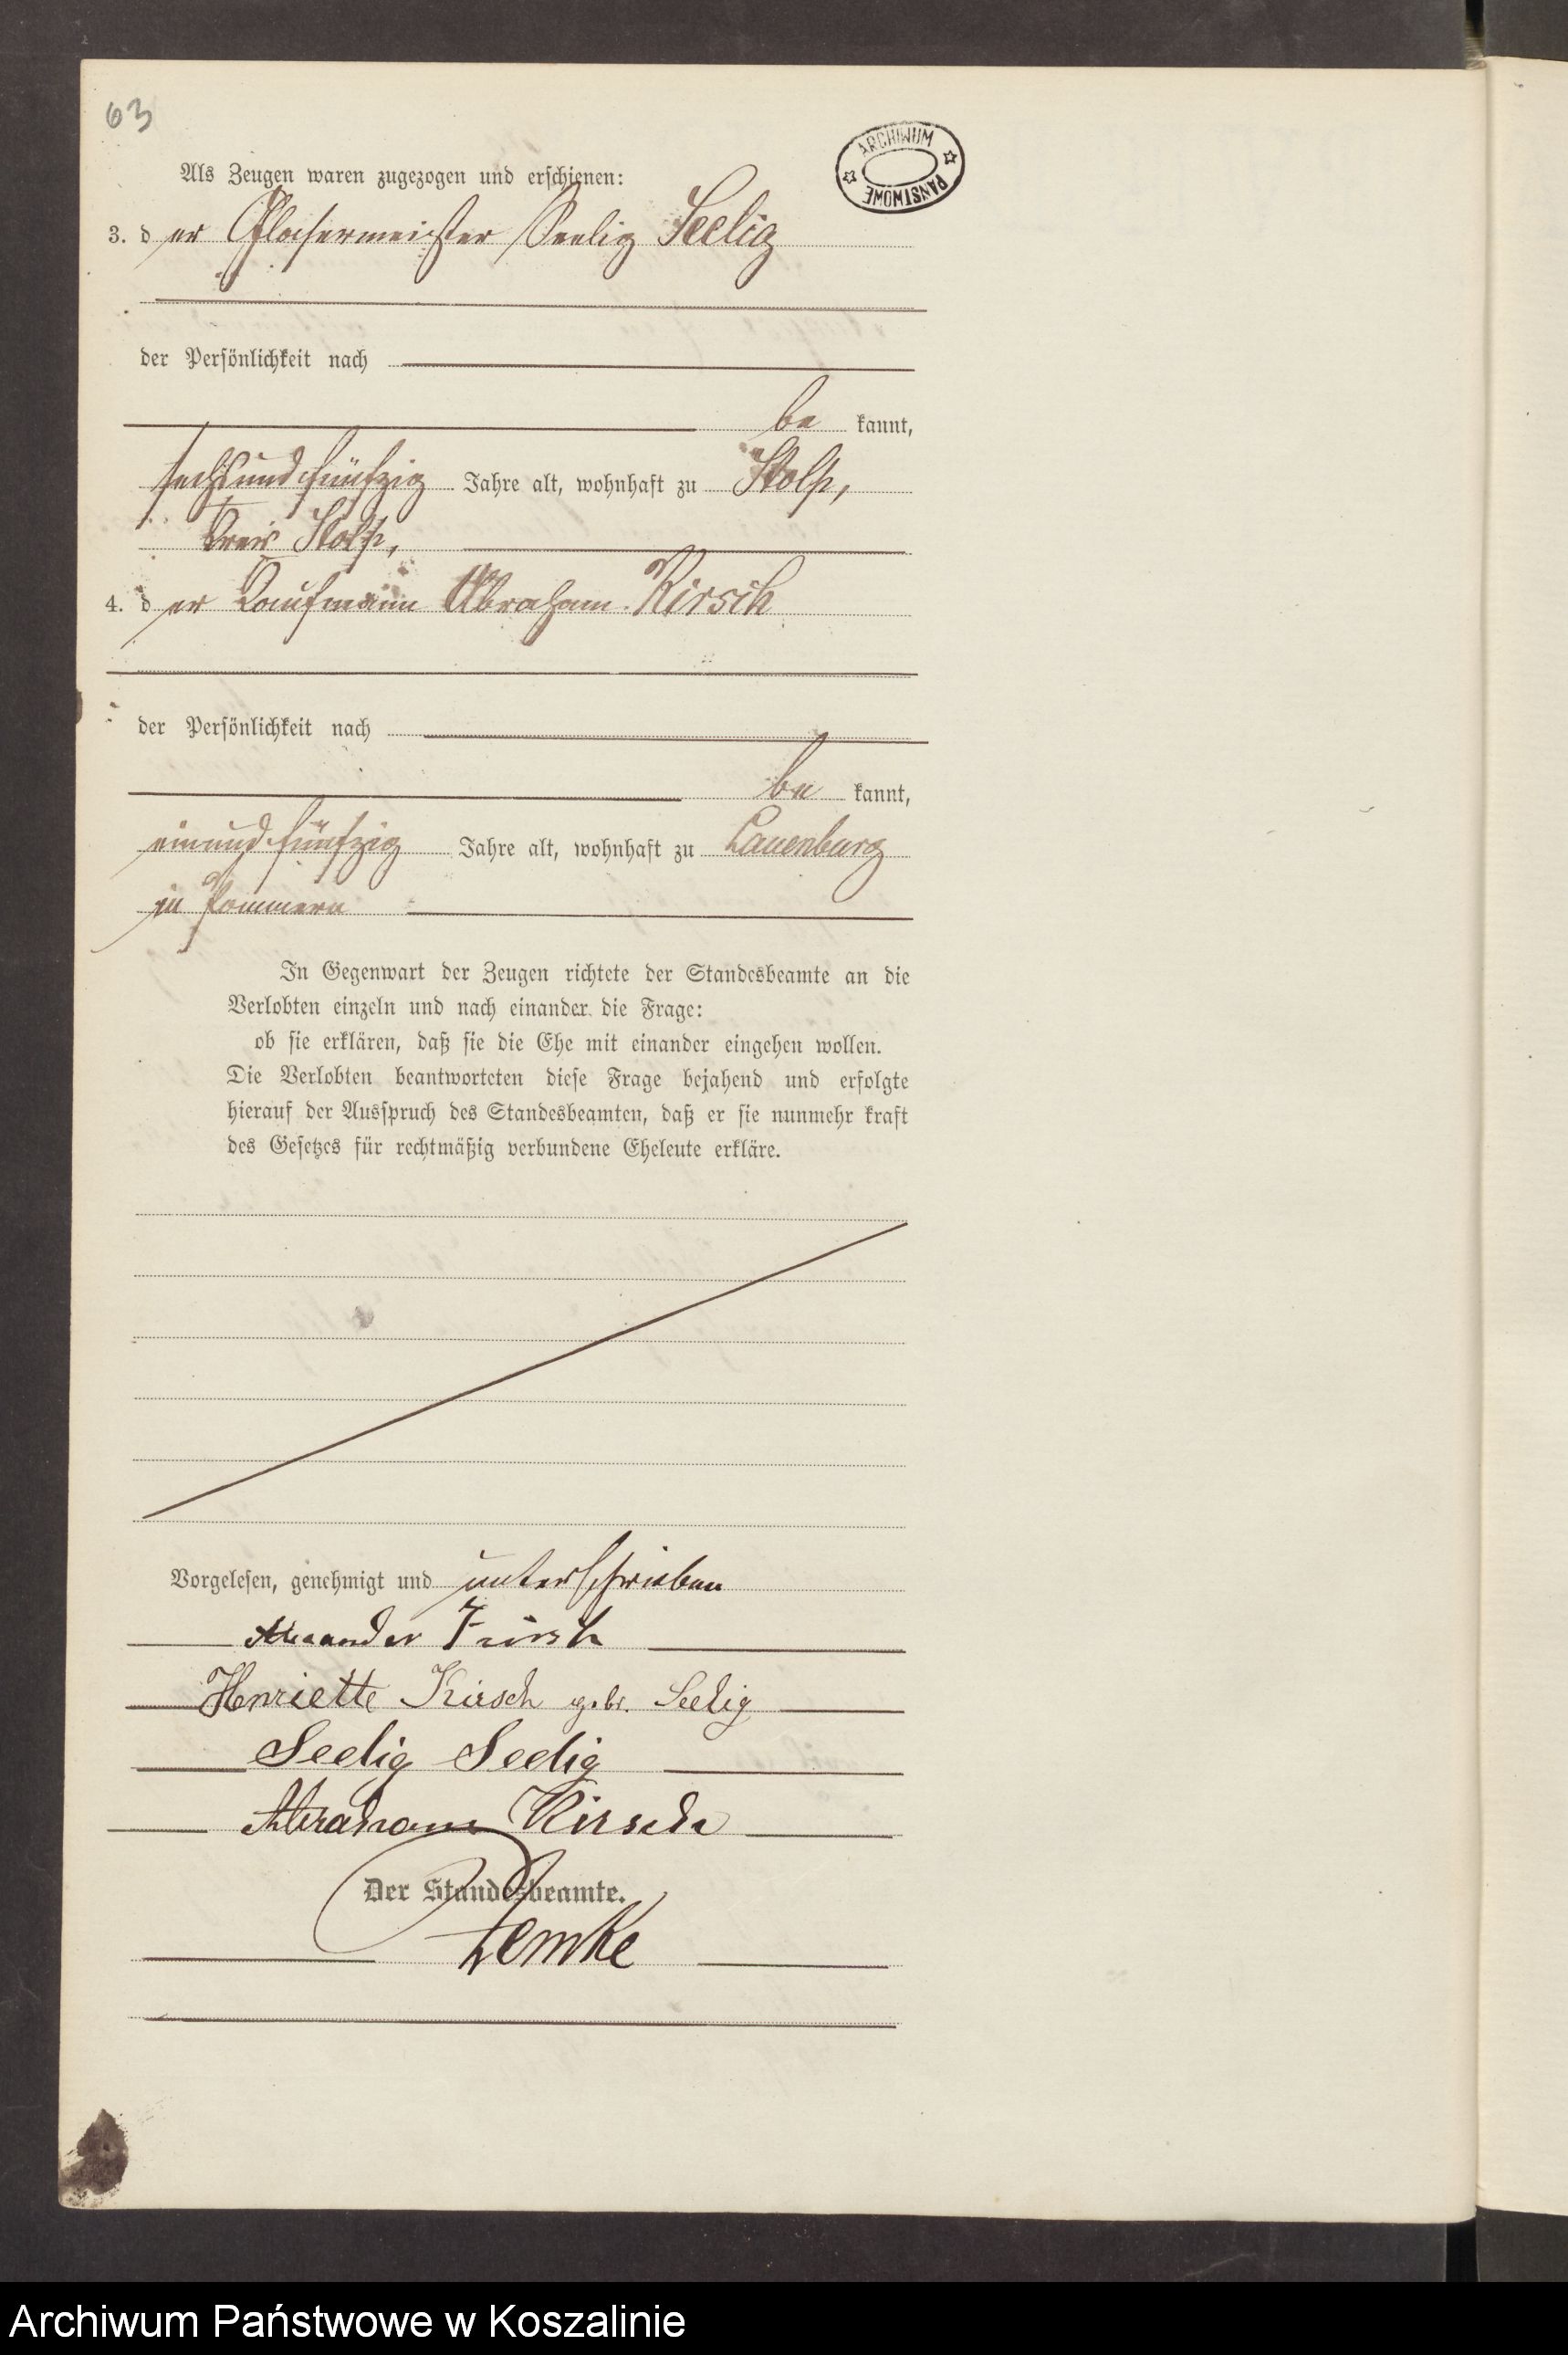 63
ARCHIWUM PAŃSTWOWE
Als Zeugen waren zugezogen und erschienen:
3. der Glasermeister Seelig Seelig
der Persönlichkeit nach
be kannt,
sechsundfünfzig Jahre alt, wohnhaft zu Stolp,
Kreis Stolp,
4. der Kaufmann Abraham Kirsch
der Persönlichkeit nach
be kannt,
einundfünfzig Jahre alt, wohnhaft zu Lauenburg
in Pommern
In Gegenwart der Zeugen richtete der Standesbeamte an die
Verlobten einzeln und nach einander die Frage:
ob sie erklären, daß sie die Ehe mit einander eingehen wollen.
Die Verlobten beantworteten diese Frage bejahend und erfolgte
hierauf der Ausspruch des Standesbeamten, daß er sie nunmehr kraft
des Gesetzes für rechtmäßig verbundene Eheleute erkläre.
Vorgelesen, genehmigt und unterschrieben
Alexander Kirsch
Henriette Kirsch geb. Seelig
Seelig Seelig
Abraham Kirsch
Der Standesbeamte.
Zemke
Archiwum Państwowe w Koszalinie